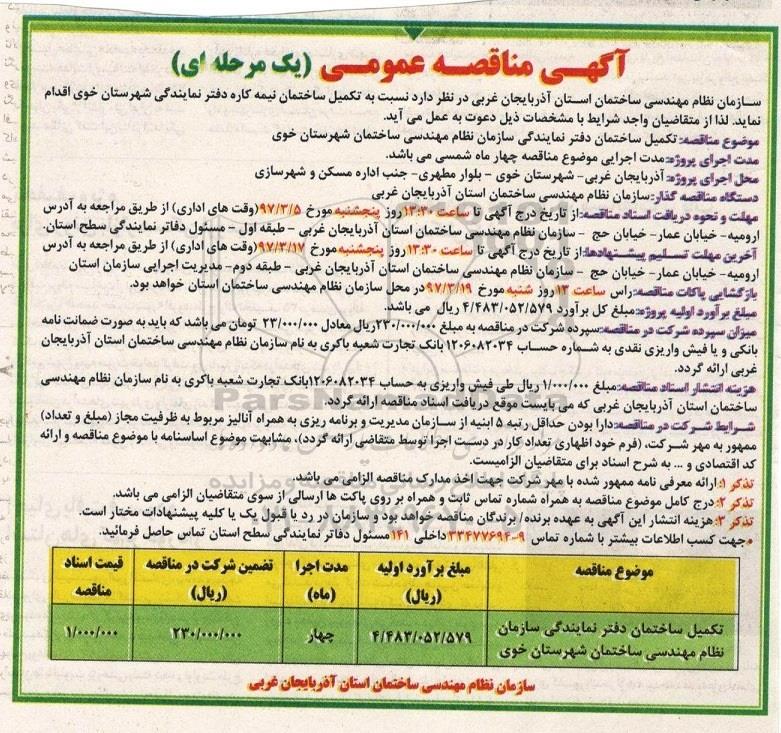 آگهی مناقصه عمومی (یک مرحله ای)
سازمان نظام مهندسی ساختمان استان آذربایجان غربی در نظر دارد نسبت به تکمیل ساختمان نیمه کاره دفتر نمایندگی شهرستان خوی اقدام
نماید. لذا از متقاضیان واجد شرایط با مشخصات ذیل دعوت به عمل می آید.
موضوع مناقصه: تکمیل ساختمان دفتر نمایندگی سازمان نظام مهندسی ساختمان شهرستان خوی
مدت اجرای پروژه: مدت اجرایی موضوع مناقصه چهار ماه شمسی می باشد.
محل اجرای پروژه: آذربایجان غربی- شهرستان خوی - بلوار مطهری- جنب اداره مسکن و شهرسازی
دستگاه مناقصه گذار: سازمان نظام مهندسی ساختمان استان آذربایجان غربی
مهلت و نحوه دریافت اسناد مناقصه: از تاریخ درج آگهی تا ساعت ۱۳:۳۰ روز پنجشنبه مورخ ۹۷/۳/۵ (وقت های اداری) از طریق مراجعه به آدرس
ارومیه- خیابان عمار- خیابان حج - سازمان نظام مهندسی ساختمان استان آذربایجان غربی - طبقه اول - مسئول دفاتر نمایندگی سطح استان.
آخرین مهلت تسلیم پیشنهادها: از تاریخ درج آگهی تا ساعت ۱۳:۳۰ روز پنجشنبه مورخ ۹۷/۳/۱۷ (وقت های اداری) از طریق مراجعه به آدرس
ارومیه- خیابان عمار- خیابان حج - سازمان نظام مهندسی ساختمان استان آذربایجان غربی - طبقه دوم- مدیریت اجرایی سازمان استان
بازگشایی پاکات مناقصه: راس ساعت ۱۳ روز شنبه مورخ ۹۷/۳/۱۹ در محل سازمان نظام مهندسی ساختمان استان خواهد بود.
مبلغ برآورد اولیه پروژه: مبلغ کل برآورد ۴/۴۸۳/۰۵۲/۵۷۹ ریال می باشد.
میزان سپرده شرکت در مناقصه: سپرده شرکت در مناقصه به مبلغ ۲۳۰/۰۰۰/۰۰۰ ریال معادل ۲۳/۰۰۰/۰۰۰ تومان می باشد که باید به صورت ضمانت نامه
بانکی و یا فیش واریزی نقدی به شماره حساب ۱۲۰۶۰۸۲۰۳۴ بانک تجارت شعبه باکری به نام سازمان نظام مهندسی ساختمان استان آذربایجان
غربی ارائه گردد.
هزینه انتشار اسناد مناقصه: مبلغ ۱/۰۰۰/۰۰۰ ریال طی فیش واریزی به حساب ۱۲۰۶۰۸۲۰۳۴ بانک تجارت شعبه باکری به نام سازمان نظام مهندسی
ساختمان استان آذربایجان غربی که می بایست موقع دریافت اسناد مناقصه ارائه گردد.
شرایط شرکت در مناقصه: دارا بودن حداقل رتبه ۵ ابنیه از سازمان مدیریت و برنامه ریزی به همراه آنالیز مربوط به ظرفیت مجاز (مبلغ و تعداد)
ممهور به مهر شرکت، (فرم خود اظهاری تعداد کار در دست اجرا توسط متقاضی ارائه گردد)، مشابهت موضوع اساسنامه با موضوع مناقصه و ارائه
کد اقتصادی و ... به شرح اسناد برای متقاضیان الزامیست.
تذکر ۱: ارائه معرفی نامه ممهور شده با مهر شرکت جهت اخذ مدارک مناقصه الزامی می باشد.
تذکر ۲: درج کامل موضوع مناقصه به همراه شماره تماس ثابت و همراه بر روی پاکت ها ارسالی از سوی متقاضیان الزامی می باشد.
تذکر ۳: هزینه انتشار این آگهی به عهده برنده/ برندگان مناقصه خواهد بود و سازمان در رد یا قبول یک یا کلیه پیشنهادات مختار است.
•جهت کسب اطلاعات بیشتر با شماره تماس ۹-۳۳۴۷۷۶۹۴ داخلی ۱۴۱ مسئول دفاتر نمایندگی سطح استان تماس حاصل فرمائید.
موضوع مناقصه مبلغ برآورد اولیه (ریال) مدت اجرا (ماه) تضمین شرکت در مناقصه (ریال) قیمت اسناد مناقصه
تکمیل ساختمان دفتر نمایندگی سازمان نظام مهندسی ساختمان شهرستان خوی ۴/۴۸۳/۰۵۲/۵۷۹ چهار ۲۳۰/۰۰۰/۰۰۰ ۱/۰۰۰/۰۰۰
سازمان نظام مهندسی ساختمان استان آذربایجان غربی